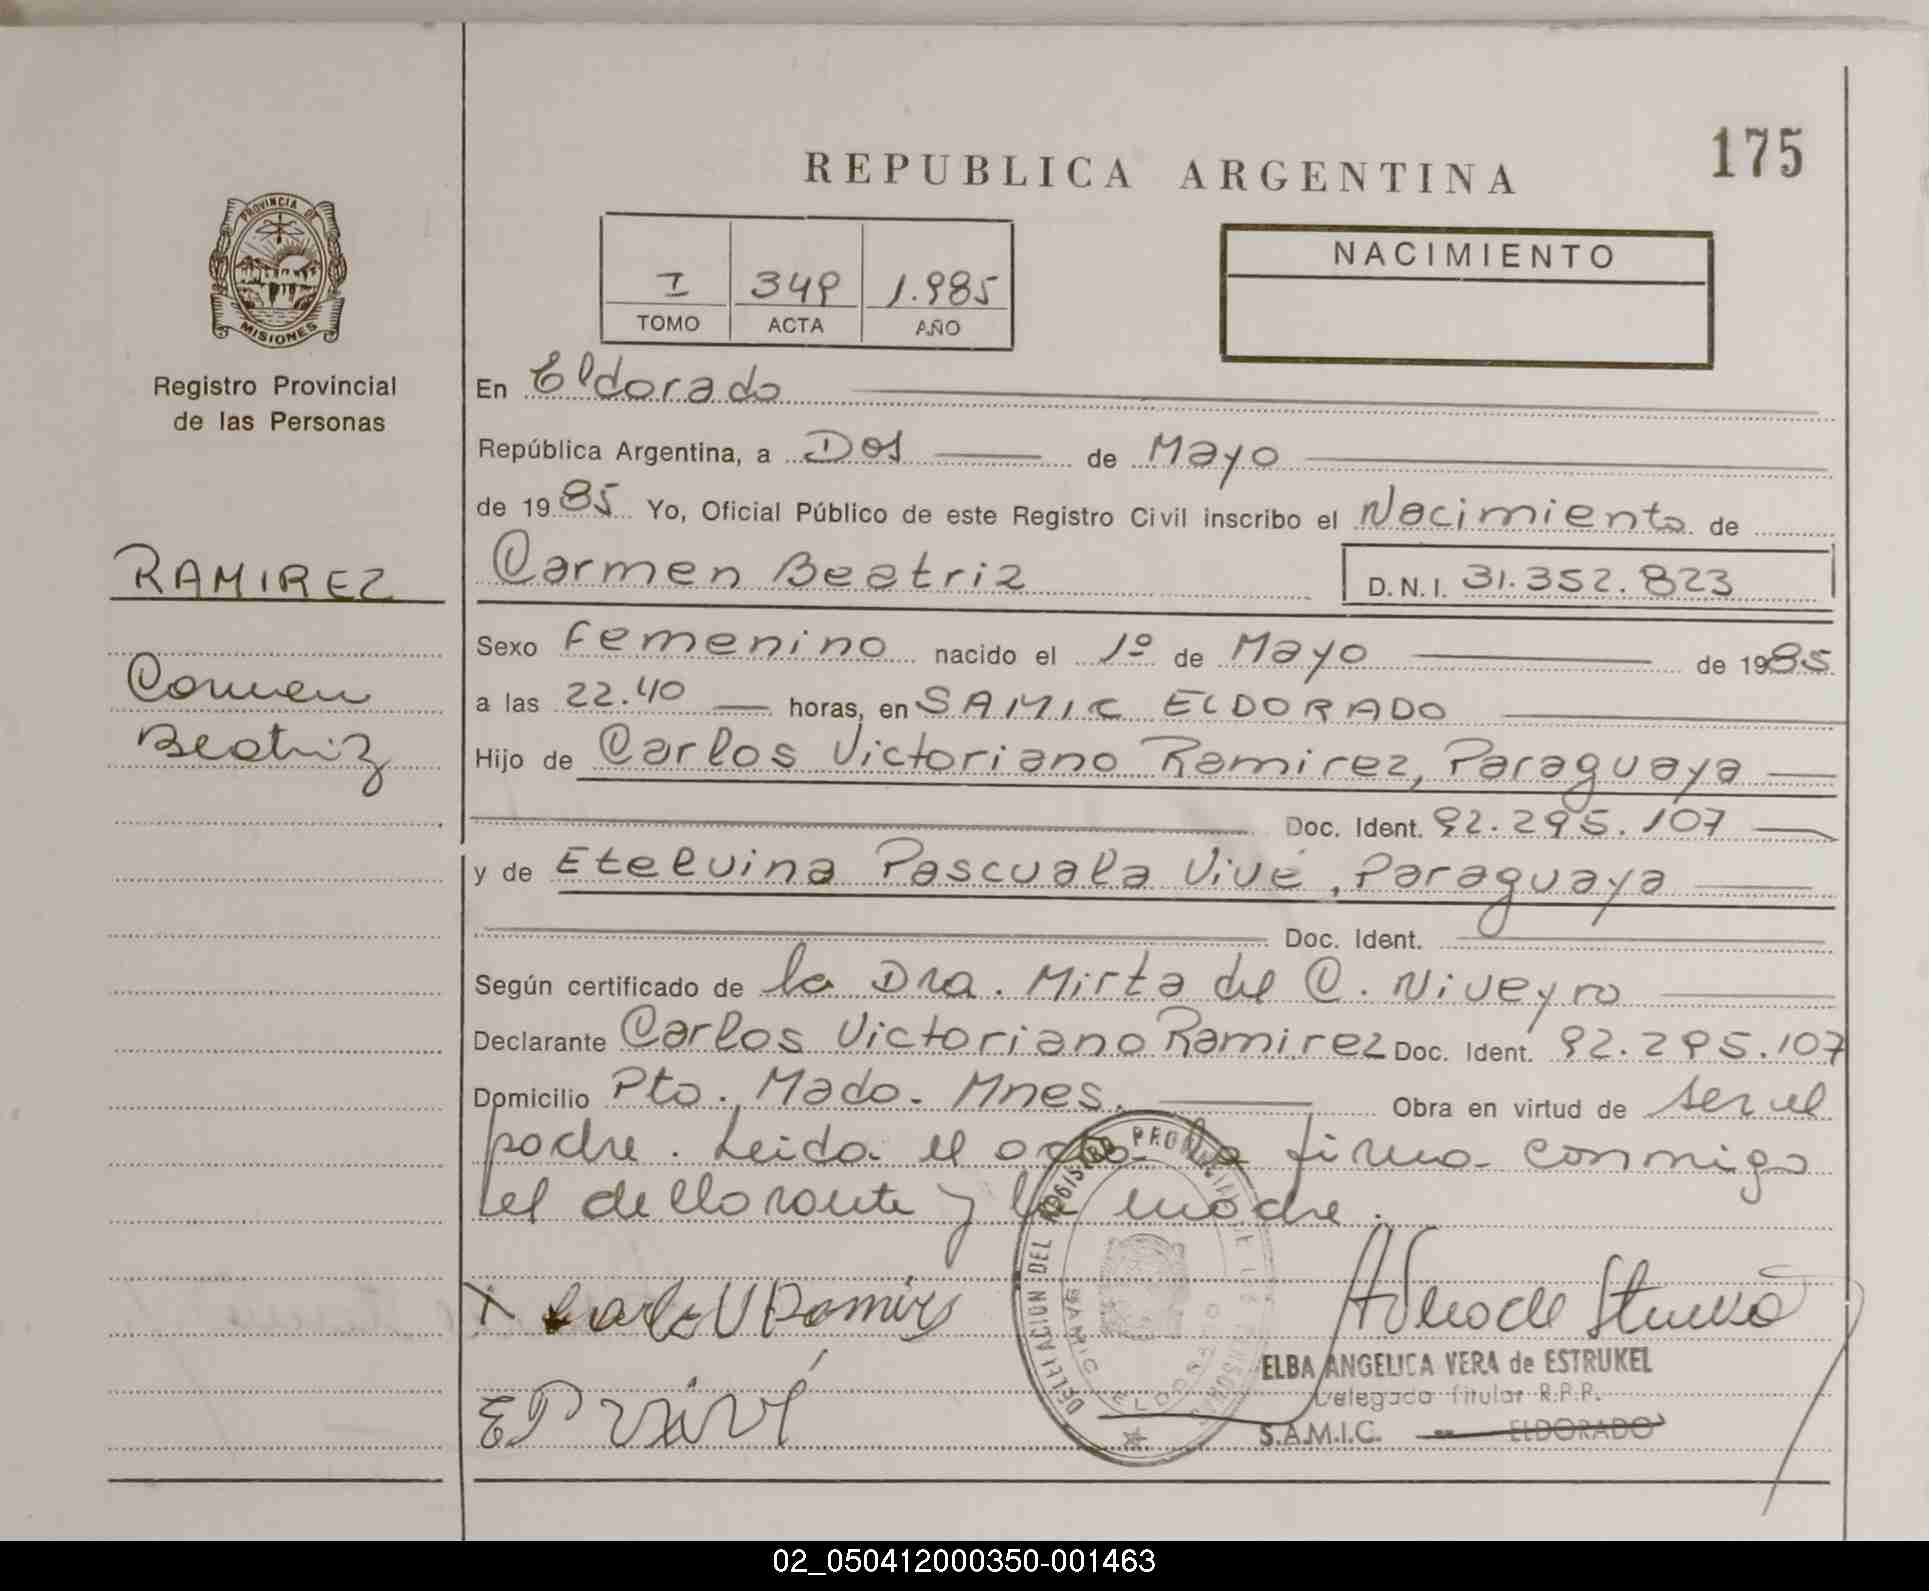 175
REPUBLICA ARGENTINA
PROVINCIA DE
MISIONES
Registro Provincial
de las Personas
I 349 1.985
TOMO ACTA AÑO
NACIMIENTO
En Eldorado
República Argentina, a Dos de Mayo
de 1985 Yo, Oficial Público de este Registro Civil inscribo el Nacimiento de
RAMIREZ
Carmen
Beatriz
Carmen Beatriz D.N.I. 31.352.823
Sexo Femenino nacido el 1º de Mayo de 1985
a las 22.40 horas, en SAMIC ELDORADO
Hijo de Carlos Victoriano Ramirez, Paraguaya
Doc. Ident. 92.295.107
y de Etelvina Pascuala Vivé, Paraguaya
Doc. Ident.
Según certificado de la Dra. Mirta del C. Niveyro
Declarante Carlos Victoriano Ramirez Doc. Ident. 92.295.107
Domicilio Pto. Mado. Mnes. Obra en virtud de ser el
padre. Leida el acta la firma conmigo
el declarante y la madre.
DELEGACION DEL REGISTRO PROVINCIAL DE LAS PERSONAS
SAMIC ELDORADO
ELBA ANGELICA VERA de ESTRUKEL
Delegada Titular R.P.P.
S.A.M.I.C. ELDORADO
02_050412000350-001463